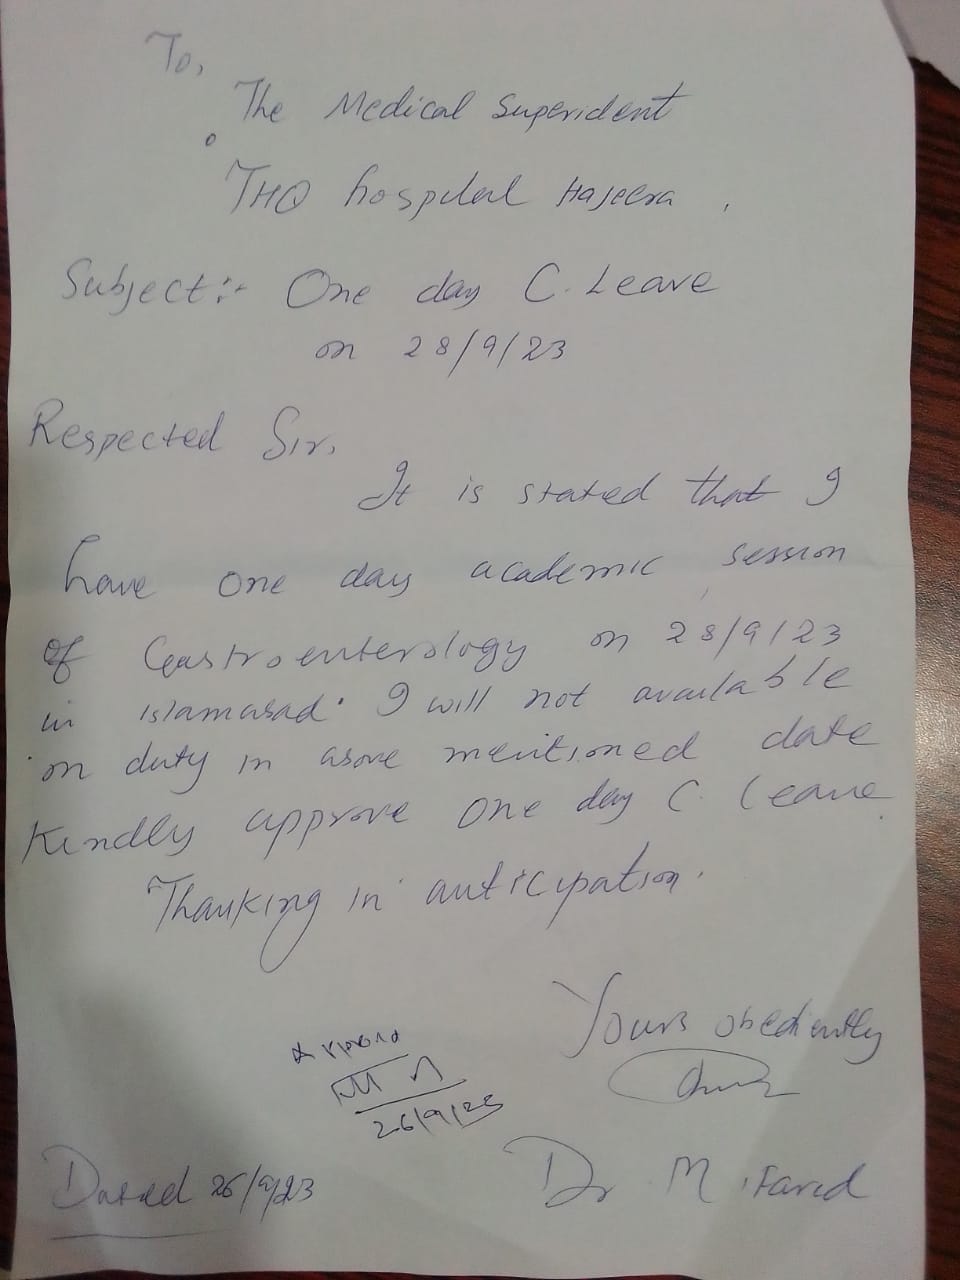 To,
The Medical Superident
THQ hospital Hajeera,
Subject:- One day C. Leave
on 28/9/23
Respected Sir,
It is stated that I
have one day academic session
of Gastroenterology on 28/9/23
in islamabad. I will not available
on duty in above mentioned date
Kindly approve one day C. Leave.
Thanking in anticipation.
Yours obediently
26/9/23
Dr. M. Farid
Dated 26/9/23